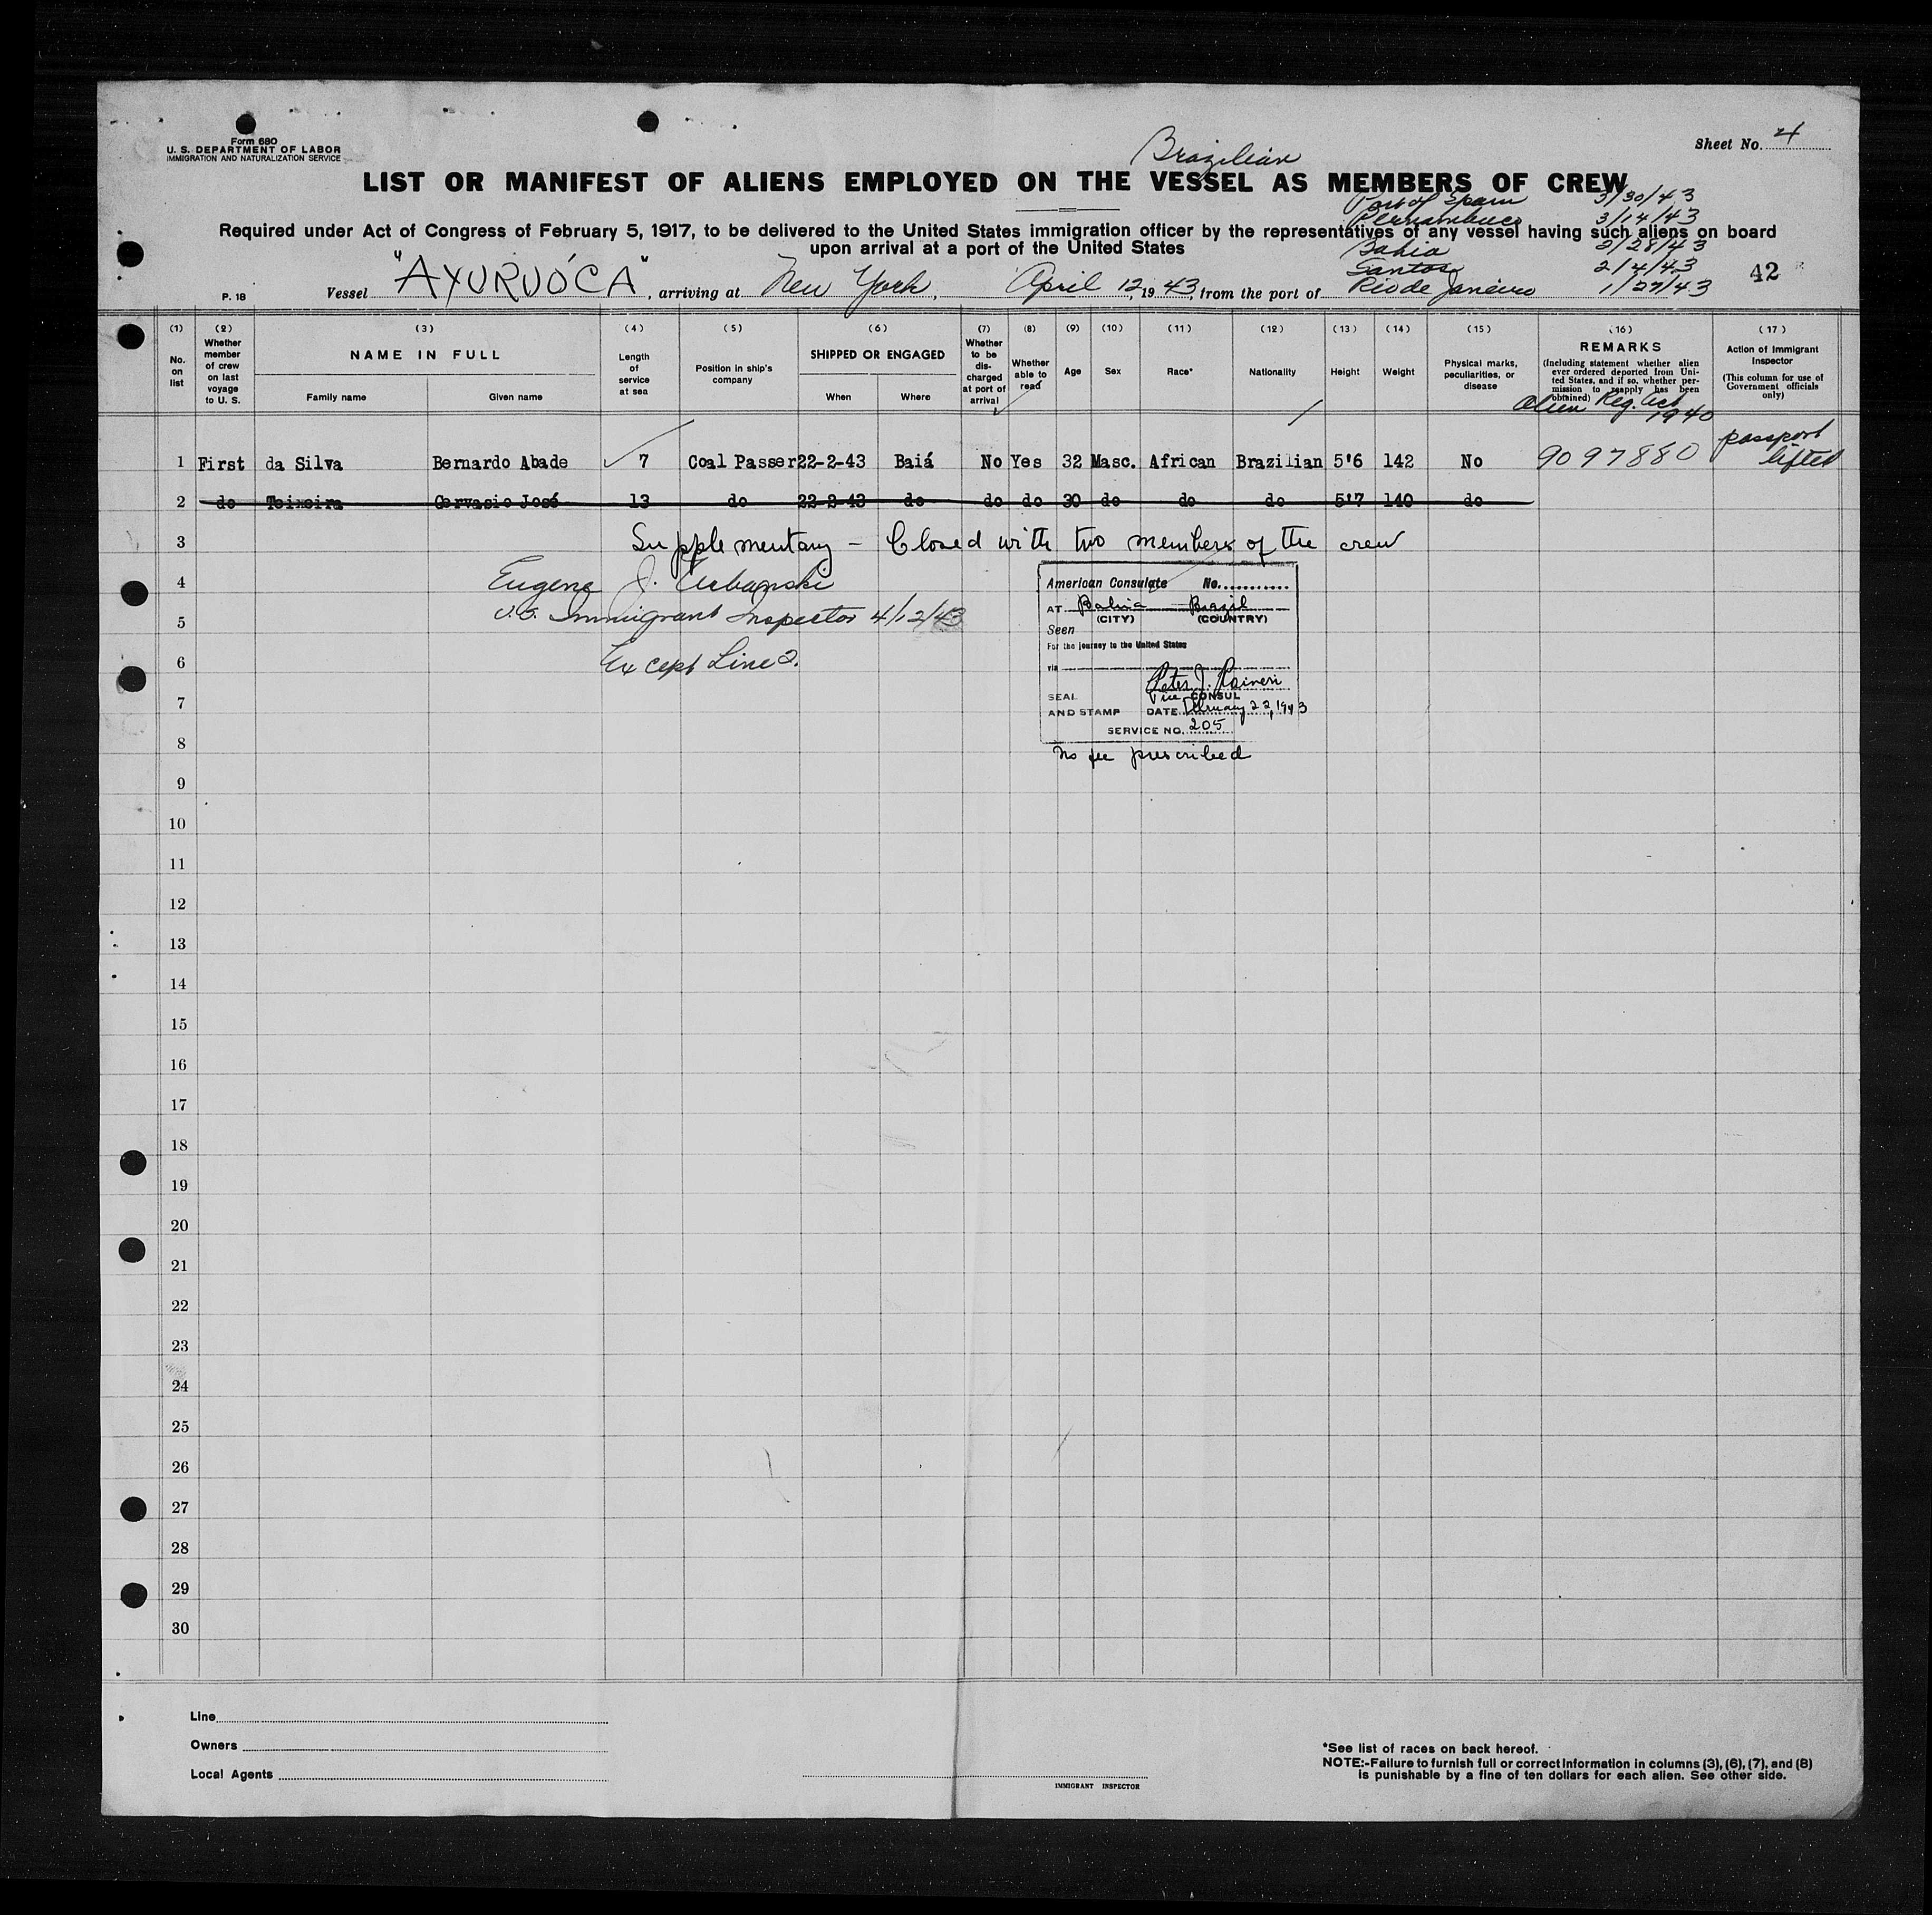 Form 680
U. S. DEPARTMENT OF LABOR
IMMIGRATION AND NATURALIZATION SERVICE
Sheet No. 4
Brazilian
LIST OR MANIFEST OF ALIENS EMPLOYED ON THE VESSEL AS MEMBERS OF CREW
Port of Spain 3/30/43
Pernambuco 3/14/43
Required under Act of Congress of February 5, 1917, to be delivered to the United States immigration officer by the representatives of any vessel having such aliens on board
upon arrival at a port of the United States
Bahia 2/28/43
Santos 2/4/43
42
P. 18
Vessel "AYURUÓCA", arriving at New York, April 12, 1943, from the port of Rio de Janeiro 1/27/43
(1) (2) (3) (4) (5) (6) (7) (8) (9) (10) (11) (12) (13) (14) (15) (16) (17)
No. on list
Whether member of crew on last voyage to U. S.
NAME IN FULL
Family name
Given name
Length of service at sea
Position in ship's company
SHIPPED OR ENGAGED
When
Where
Whether to be discharged at port of arrival
Whether able to read
Age
Sex
Race*
Nationality
Height
Weight
Physical marks, peculiarities, or disease
REMARKS
(Including statement whether alien ever ordered deported from United States, and if so, whether permission to reapply has been obtained)
Alien Reg. Act 1940
Action of Immigrant Inspector
(This column for use of Government officials only)
1 First da Silva Bernardo Abade 7 Coal Passer 22-2-43 Baiá No Yes 32 Masc. African Brazilian 5'6 142 No 9097880 passport lifted
2 do Teixeira Gervasio José 13 do 22-2-43 do do do 30 do do do 5'7 140 do
3 Supplementary - Closed with two members of the crew
4 Eugene J. Urbanski
5 U.S. Immigrant Inspector 4/12/43
6 Except Line 2.
American Consulate No.
AT Bahia Brazil
(CITY) (COUNTRY)
Seen
For the journey to the United States
via
Peter J. Raineri
SEAL Vice CONSUL
AND STAMP DATE February 22, 1943
SERVICE NO. 205
No fee prescribed
7
8
9
10
11
12
13
14
15
16
17
18
19
20
21
22
23
24
25
26
27
28
29
30
Line
Owners
Local Agents
IMMIGRANT INSPECTOR
*See list of races on back hereof.
NOTE:-Failure to furnish full or correct information in columns (3), (6), (7), and (8)
is punishable by a fine of ten dollars for each alien. See other side.